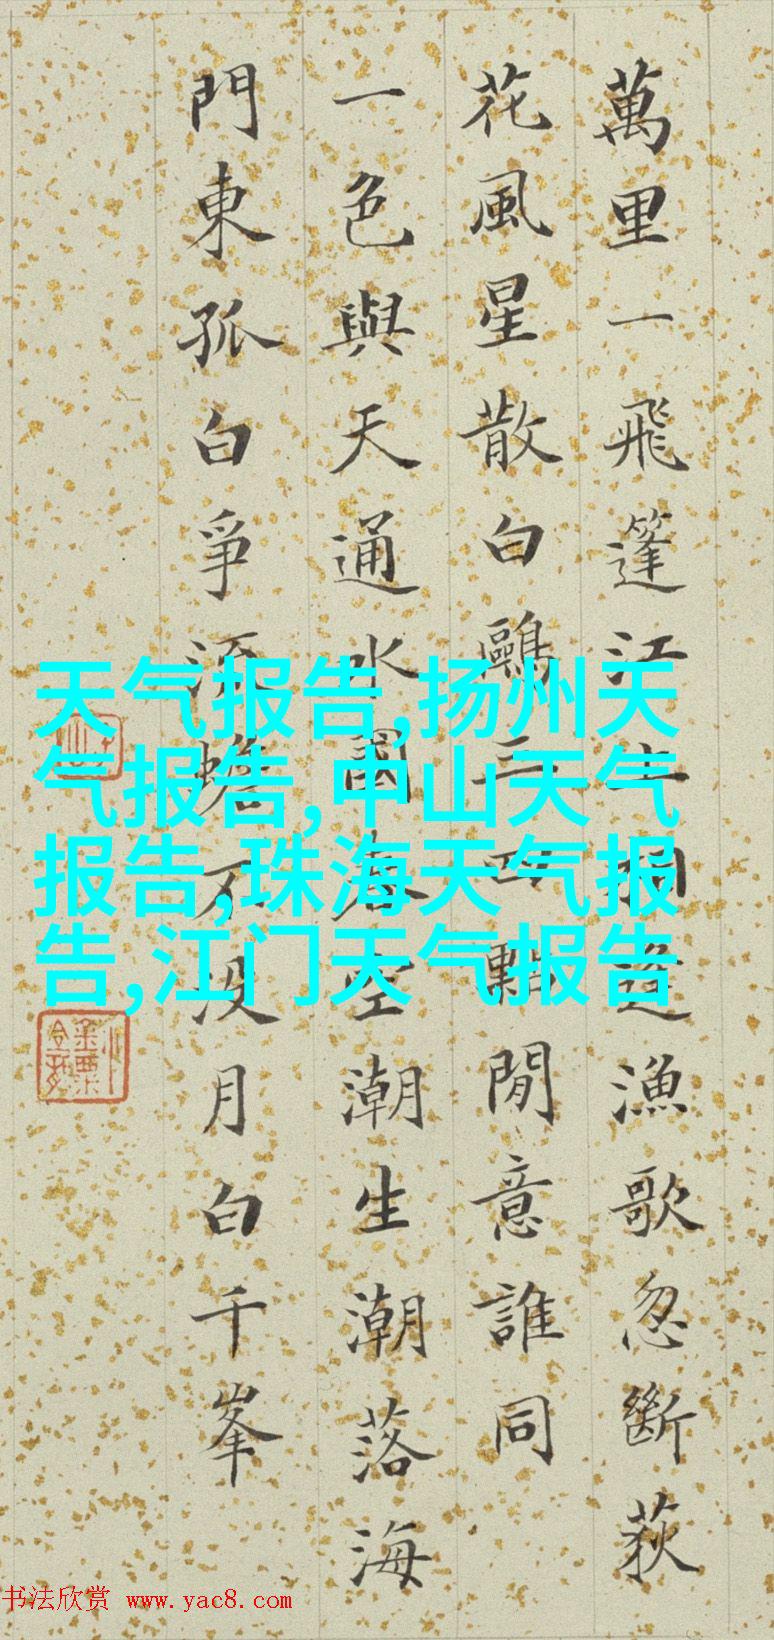 萬里一飛篷江上相逢漁歌忽斷荻
花風星散白鷗三四點閒意誰同
一色與天通水闊春空潮生潮落海
門東孤白爭流蟾不沒月白千峯
天气报告,扬州天
气报告,中山天气
报告,珠海天气报
告,江门天气报告
书法欣赏 www.yac8.com